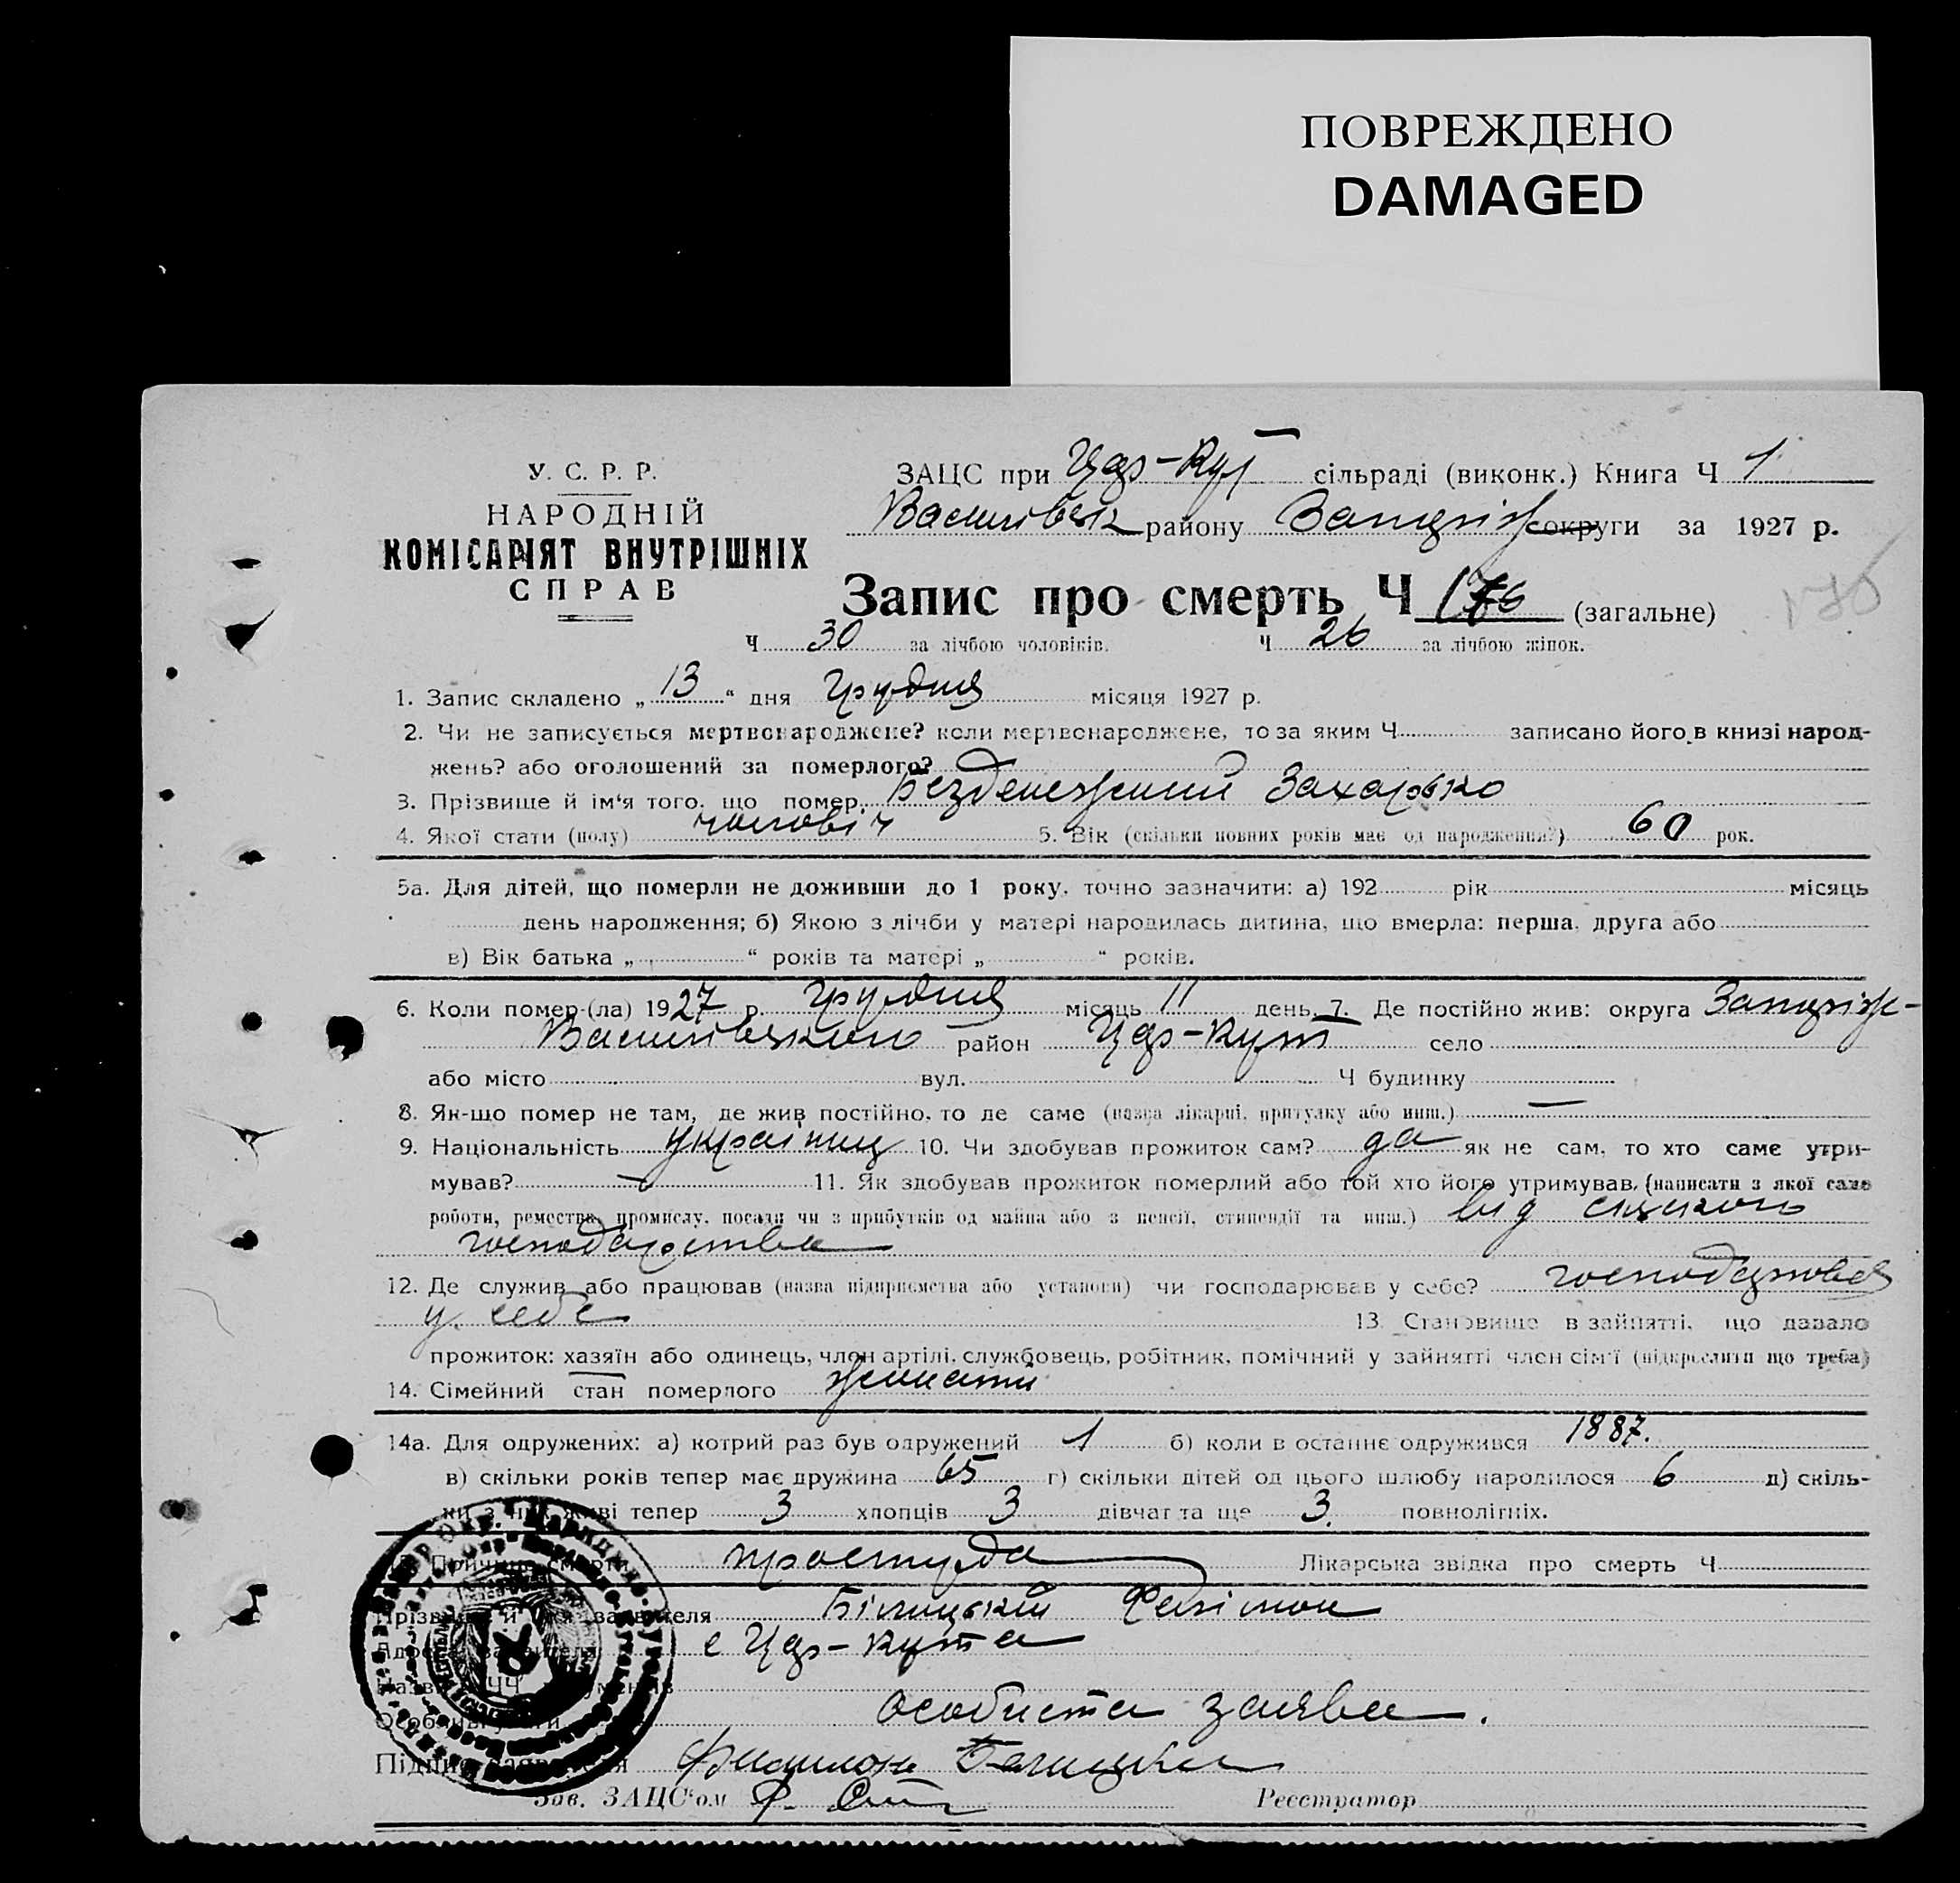 ПОВРЕЖДЕНО
DAMAGED
У. С. Р. Р.
НАРОДНІЙ
КОМІСАРІЯТ ВНУТРІШНІХ
СПРАВ
ЗАЦС при Цар-Кут сільраді (виконк.) Книга Ч 1
Василівськ району Запоріж округи за 1927 р.
Запис про смерть Ч (загальне)
Ч 30 за лічбою чоловіків. Ч 26 за лічбою жінок.
1. Запис складено „ 13 “ дня Грудня місяця 1927 р.
2. Чи не записується мертвонароджене? коли мертвонароджене, то за яким Ч записано його в книзі народ-
жень? або оголошений за померлого?
3. Прізвище й ім'я того, що помер. Безденежний Захарько
4. Якої стати (полу) чоловіч 5. Вік (скільки повних років має од народження?) 60 рок.
5а. Для дітей, що померли не доживши до 1 року, точно зазначити: а) 192 рік місяць
день народження; б) Якою з лічби у матері народилась дитина, що вмерла: перша, друга або
в) Вік батька „ “ років та матері „ “ років.
6. Коли помер (ла) 1927 р. Грудня місяць 11 день. 7. Де постійно жив: округа Запоріж-
Василівського район Цар-Кут село
або місто вул. Ч будинку
8. Як-що помер не там, де жив постійно, то де саме (назва лікарні, притулку або инш.) —
9. Національність українц 10. Чи здобував прожиток сам? да як не сам, то хто саме утри-
мував? — 11. Як здобував прожиток померлий або той хто його утримував, (написати з якої саме
роботи, ремества, промислу, посади чи з прибутків од майна або з пенсії, стипендії та инш.) від сіцького
господарства
12. Де служив або працював (назва підприємства або установи) чи господарював у себе? господарював
у себе 13. Становище в зайнятті, що давало
прожиток: хазяїн або одинець, член артілі, службовець, робітник, помічний у зайнятті член сім'ї (підкреслити що треба)
14. Сімейний стан померлого женатий
14а. Для одружених: а) котрий раз був одружений 1 б) коли в останнє одружився 1887.
в) скільки років тепер має дружина 65 г) скільки дітей од цього шлюбу народилося 6 д) скіль-
ки з них живі тепер 3 хлопців 3 дівчат та ще 3. повнолітніх.
Причина смерти простуда Лікарська звідка про смерть Ч
Прізвище й ім'я заявителя Біліцький Филімон
Адреса заявителя с Цар-Кута
Назва й ЧЧ документів
Особливі уваги особиста заява.
Підпис заявителя Филимон Белицкий
Зав. ЗАЦС'ом Реєстратор